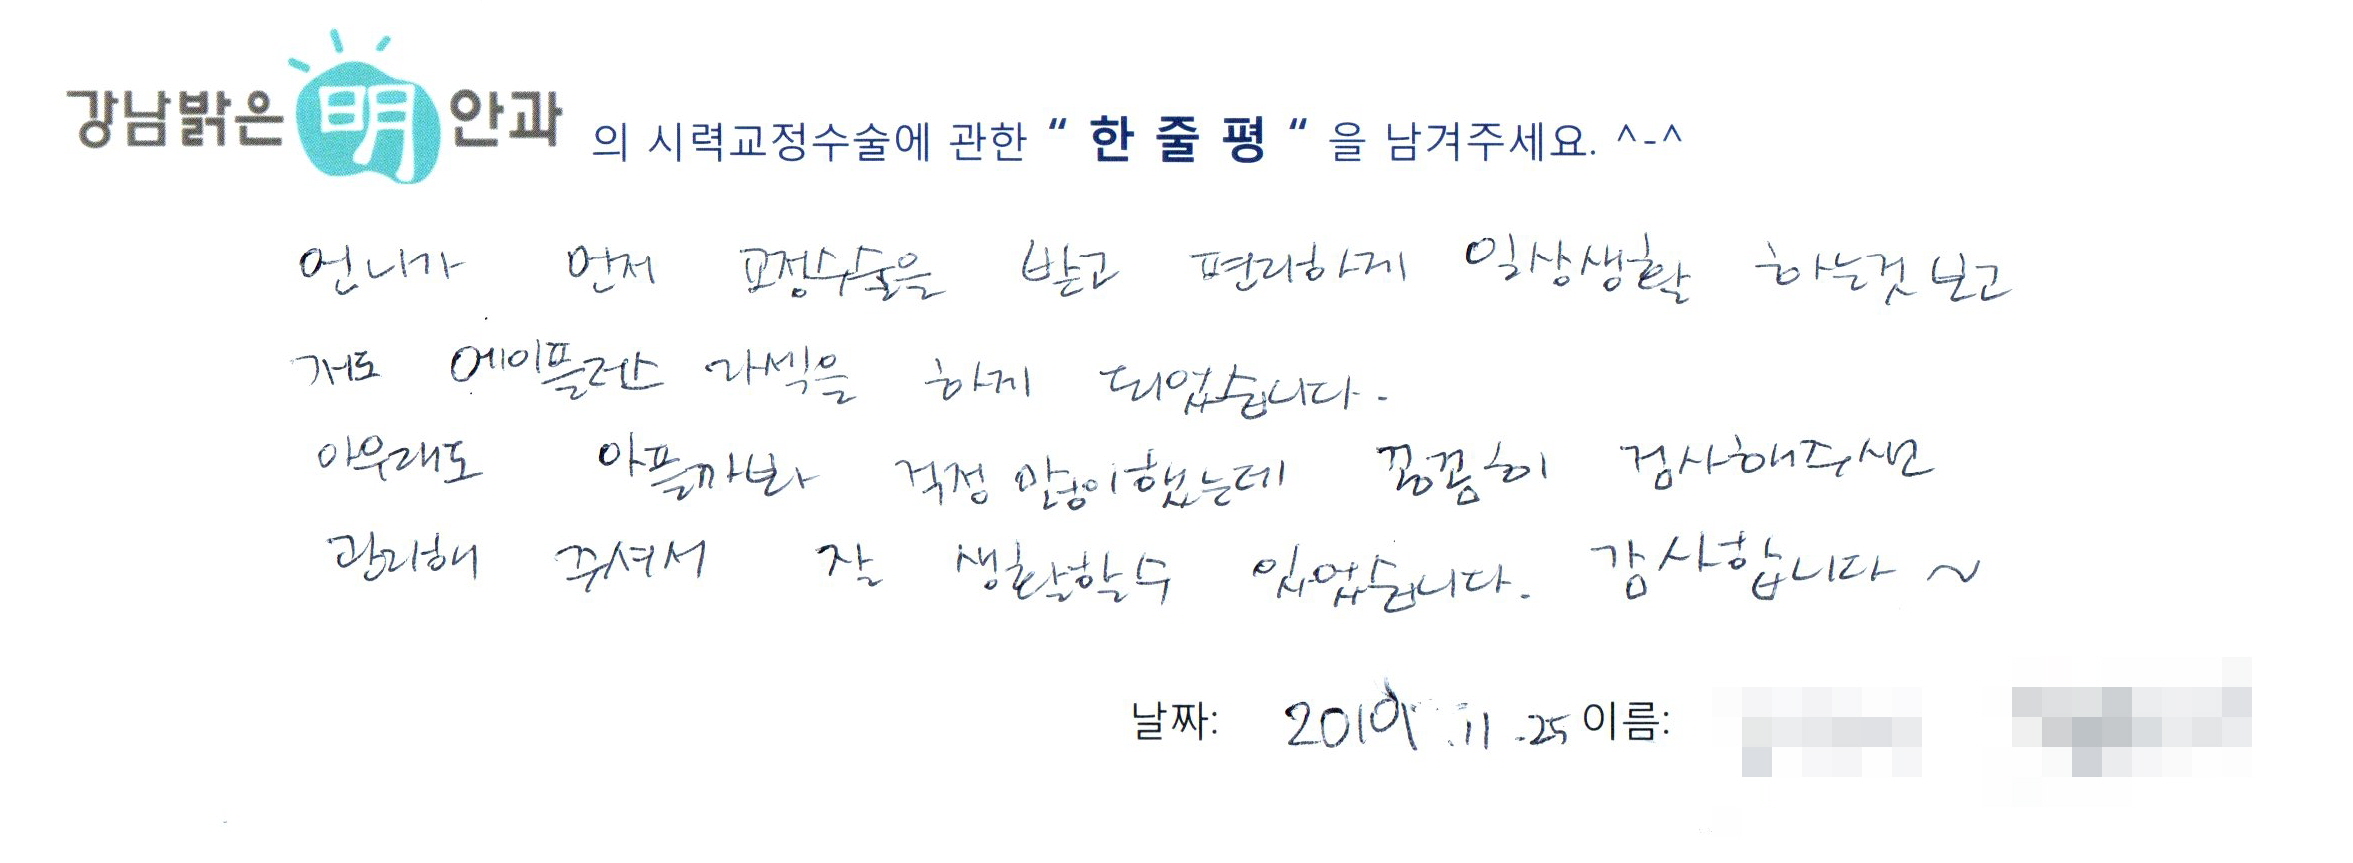 강남밝은明안과 의 시력교정수술에 관한 “ 한 줄 평 “ 을 남겨주세요. ^-^
언니가 먼저 교정수술을 받고 편리하게 일상생활 하는것 보고
저도 에이플러스 라섹을 하게 되었습니다.
아무래도 아플까봐 걱정 많이했는데 꼼꼼히 검사해주시고
관리해 주셔서 잘 생활할수 있었습니다. 감사합니다 ~
날짜: 2019.11.25 이름: